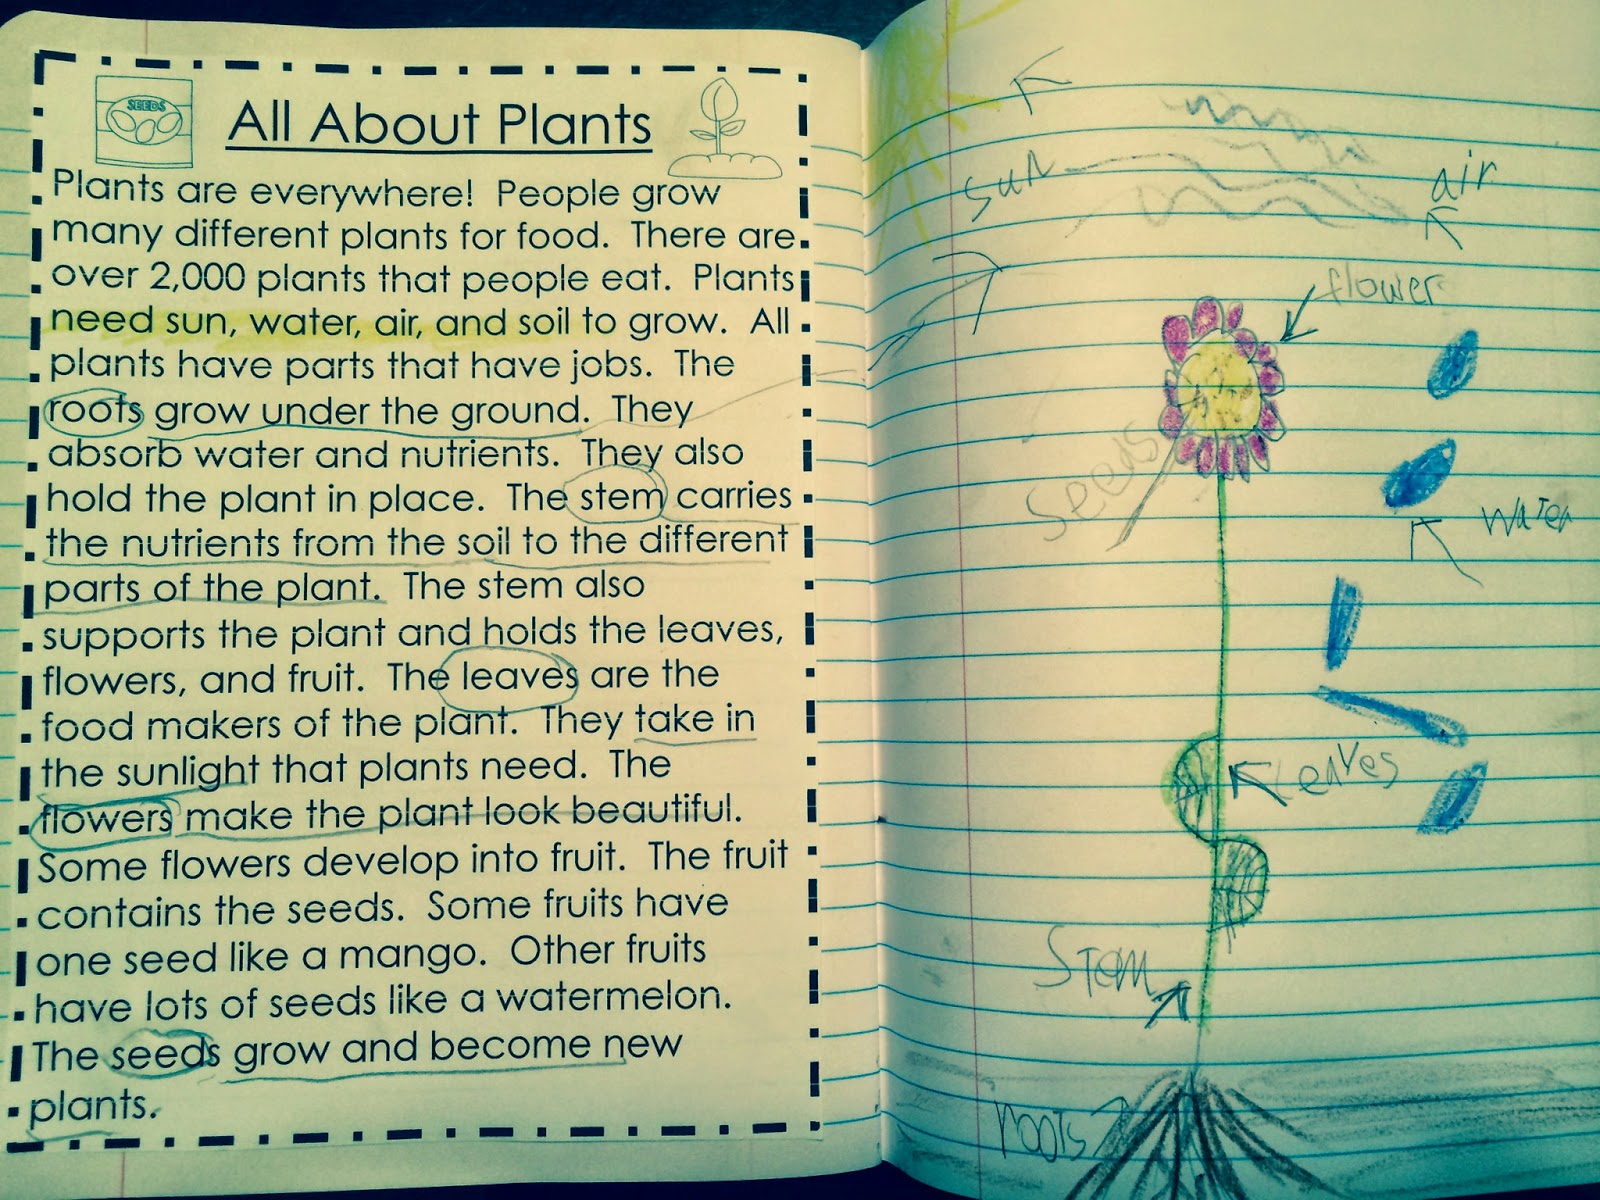 SEEDS
All About Plants
Plants are everywhere! People grow
many different plants for food. There are
over 2,000 plants that people eat. Plants
need sun, water, air, and soil to grow. All
plants have parts that have jobs. The
roots grow under the ground. They
absorb water and nutrients. They also
hold the plant in place. The stem carries
the nutrients from the soil to the different
parts of the plant. The stem also
supports the plant and holds the leaves,
flowers, and fruit. The leaves are the
food makers of the plant. They take in
the sunlight that plants need. The
flowers make the plant look beautiful.
Some flowers develop into fruit. The fruit
contains the seeds. Some fruits have
one seed like a mango. Other fruits
have lots of seeds like a watermelon.
The seeds grow and become new
plants.
sun
air
flower
seeds
water
leaves
Stem
roots